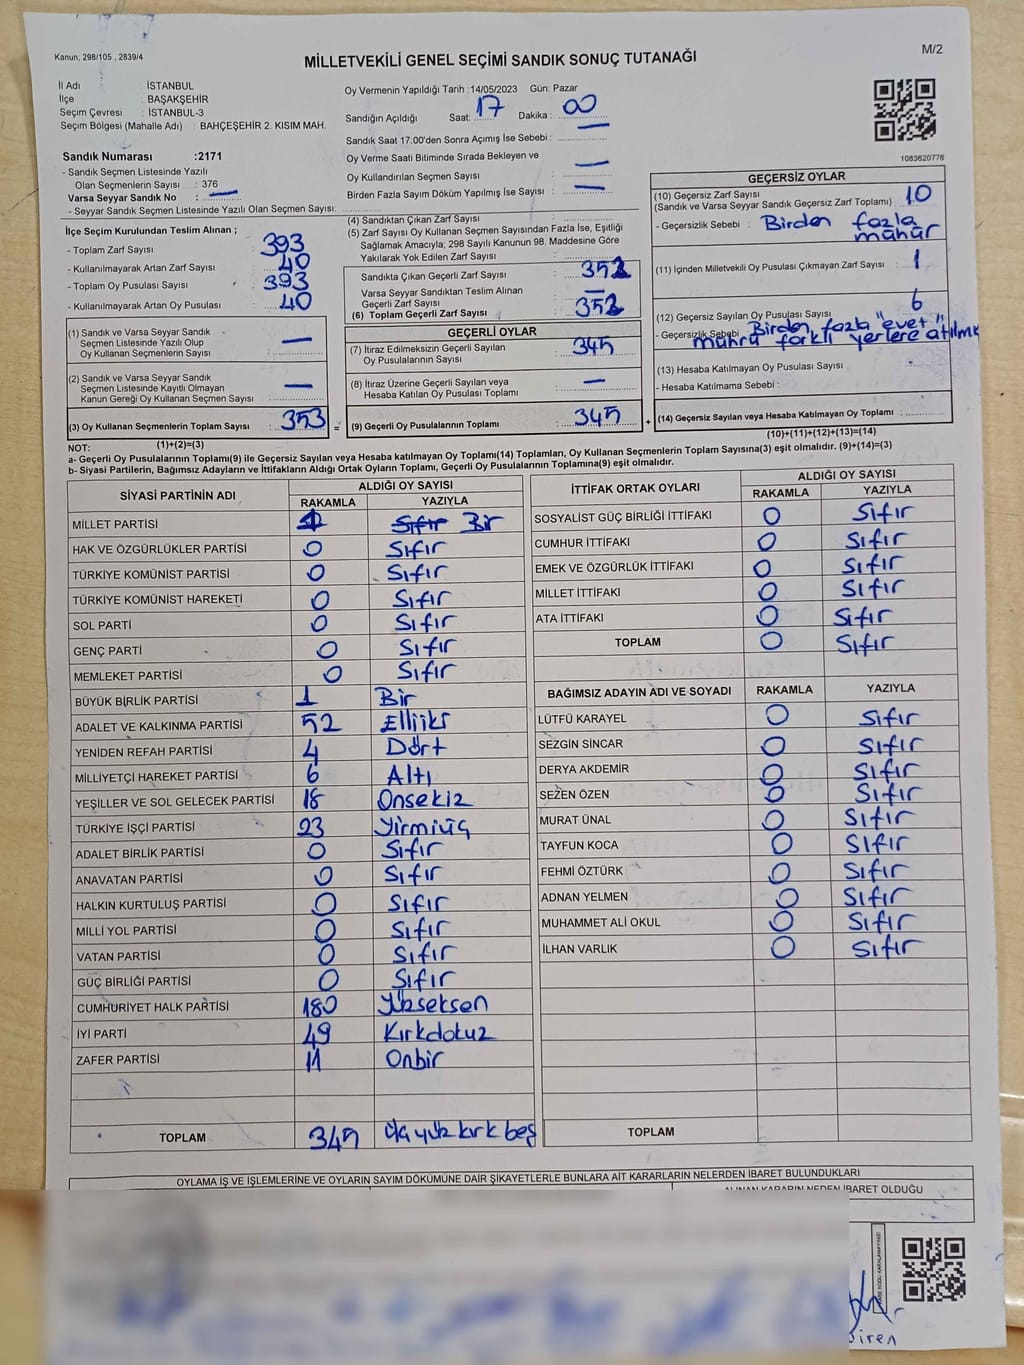 Kanun; 298/105 , 2839/4
MİLLETVEKİLİ GENEL SEÇİMİ SANDIK SONUÇ TUTANAĞI
M/2
İl Adı : İSTANBUL
İlçe : BAŞAKŞEHİR
Seçim Çevresi : İSTANBUL-3
Seçim Bölgesi (Mahalle Adı) : BAHÇEŞEHİR 2. KISIM MAH.
Sandık Numarası :2171
- Sandık Seçmen Listesinde Yazılı
Olan Seçmenlerin Sayısı : 376
Varsa Seyyar Sandık No : —
- Seyyar Sandık Seçmen Listesinde Yazılı Olan Seçmen Sayısı:
İlçe Seçim Kurulundan Teslim Alınan ;
- Toplam Zarf Sayısı : 393
- Kullanılmayarak Artan Zarf Sayısı : 40
- Toplam Oy Pusulası Sayısı : 393
- Kullanılmayarak Artan Oy Pusulası : 40
(1) Sandık ve Varsa Seyyar Sandık
Seçmen Listesinde Yazılı Olup
Oy Kullanan Seçmenlerin Sayısı : —
(2) Sandık ve Varsa Seyyar Sandık
Seçmen Listesinde Kayıtlı Olmayan
Kanun Gereği Oy Kullanan Seçmen Sayısı : —
(3) Oy Kullanan Seçmenlerin Toplam Sayısı : 353
(1)+(2)=(3)
Oy Vermenin Yapıldığı Tarih :14/05/2023 Gün: Pazar
Sandığın Açıldığı Saat: 17 Dakika : 00
Sandık Saat 17:00'den Sonra Açımış İse Sebebi : —
Oy Verme Saati Bitiminde Sırada Bekleyen ve
Oy Kullandırılan Seçmen Sayısı : —
Birden Fazla Sayım Döküm Yapılmış İse Sayısı : —
(4) Sandıktan Çıkan Zarf Sayısı :
(5) Zarf Sayısı Oy Kullanan Seçmen Sayısından Fazla İse, Eşitliği
Sağlamak Amacıyla; 298 Sayılı Kanunun 98. Maddesine Göre
Yakılarak Yok Edilen Zarf Sayısı :
Sandıkta Çıkan Geçerli Zarf Sayısı : 352
Varsa Seyyar Sandıktan Teslim Alınan
Geçerli Zarf Sayısı : —
(6) Toplam Geçerli Zarf Sayısı : 352
GEÇERLİ OYLAR
(7) İtiraz Edilmeksizin Geçerli Sayılan
Oy Pusulalarının Sayısı : 345
(8) İtiraz Üzerine Geçerli Sayılan veya
Hesaba Katılan Oy Pusulası Toplamı : —
= (9) Geçerli Oy Pusulalarının Toplamı : 345 +
1083620776
GEÇERSİZ OYLAR
(10) Geçersiz Zarf Sayısı : 10
(Sandık ve Varsa Seyyar Sandık Geçersiz Zarf Toplamı)
- Geçersizlik Sebebi : Birden fazla
mühür
(11) İçinden Milletvekili Oy Pusulası Çıkmayan Zarf Sayısı : 1
(12) Geçersiz Sayılan Oy Pusulası Sayısı : 6
- Geçersizlik Sebebi : Birden fazla "evet"
mührü farklı yerlere atılmı
(13) Hesaba Katılmayan Oy Pusulası Sayısı :
- Hesaba Katılmama Sebebi :
(14) Geçersiz Sayılan veya Hesaba Katılmayan Oy Toplamı :
(10)+(11)+(12)+(13)=(14)
NOT:
a- Geçerli Oy Pusulalarının Toplamı(9) ile Geçersiz Sayılan veya Hesaba katılmayan Oy Toplamı(14) Toplamları, Oy Kullanan Seçmenlerin Toplam Sayısına(3) eşit olmalıdır. (9)+(14)=(3)
b- Siyasi Partilerin, Bağımsız Adayların ve İttifakların Aldığı Ortak Oyların Toplamı, Geçerli Oy Pusulalarının Toplamına(9) eşit olmalıdır.
SİYASİ PARTİNİN ADI ALDIĞI OY SAYISI
RAKAMLA YAZIYLA
MİLLET PARTİSİ 1 Sıfır Bir
HAK VE ÖZGÜRLÜKLER PARTİSİ 0 Sıfır
TÜRKİYE KOMÜNİST PARTİSİ 0 Sıfır
TÜRKİYE KOMÜNİST HAREKETİ 0 Sıfır
SOL PARTİ 0 Sıfır
GENÇ PARTİ 0 Sıfır
MEMLEKET PARTİSİ 0 Sıfır
BÜYÜK BİRLİK PARTİSİ 1 Bir
ADALET VE KALKINMA PARTİSİ 52 Elliiki
YENİDEN REFAH PARTİSİ 4 Dört
MİLLİYETÇİ HAREKET PARTİSİ 6 Altı
YEŞİLLER VE SOL GELECEK PARTİSİ 18 Onsekiz
TÜRKİYE İŞÇİ PARTİSİ 23 Yirmiüç
ADALET BİRLİK PARTİSİ 0 Sıfır
ANAVATAN PARTİSİ 0 Sıfır
HALKIN KURTULUŞ PARTİSİ 0 Sıfır
MİLLİ YOL PARTİSİ 0 Sıfır
VATAN PARTİSİ 0 Sıfır
GÜÇ BİRLİĞİ PARTİSİ 0 Sıfır
CUMHURİYET HALK PARTİSİ 180 Yüzseksen
İYİ PARTİ 49 Kırkdokuz
ZAFER PARTİSİ 11 Onbir
TOPLAM 345 Üçyüz kırk beş
İTTİFAK ORTAK OYLARI ALDIĞI OY SAYISI
RAKAMLA YAZIYLA
SOSYALİST GÜÇ BİRLİĞİ İTTİFAKI 0 Sıfır
CUMHUR İTTİFAKI 0 Sıfır
EMEK VE ÖZGÜRLÜK İTTİFAKI 0 Sıfır
MİLLET İTTİFAKI 0 Sıfır
ATA İTTİFAKI 0 Sıfır
TOPLAM 0 Sıfır
BAĞIMSIZ ADAYIN ADI VE SOYADI RAKAMLA YAZIYLA
LÜTFÜ KARAYEL 0 Sıfır
SEZGİN SİNCAR 0 Sıfır
DERYA AKDEMİR 0 Sıfır
SEZEN ÖZEN 0 Sıfır
MURAT ÜNAL 0 Sıfır
TAYFUN KOCA 0 Sıfır
FEHMİ ÖZTÜRK 0 Sıfır
ADNAN YELMEN 0 Sıfır
MUHAMMET ALİ OKUL 0 Sıfır
İLHAN VARLIK 0 Sıfır
TOPLAM
OYLAMA İŞ VE İŞLEMLERİNE VE OYLARIN SAYIM DÖKÜMÜNE DAİR ŞİKAYETLERLE BUNLARA AİT KARARLARIN NELERDEN İBARET BULUNDUKLARI
ALINAN KARARIN NEDEN İBARET OLDUĞU